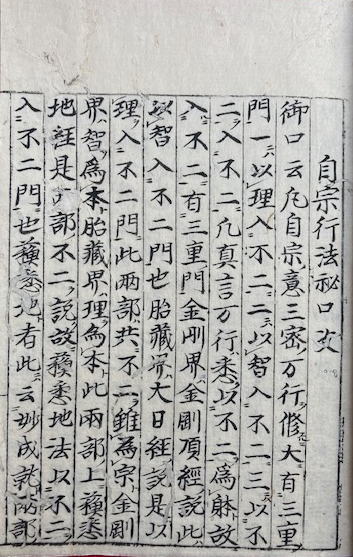 自宗行法秘口决
御口云凢自宗意三密万行修大有三重
門一以理入不二二以智入不二三以不
二入不二凢真言万行悉以不二為躰故
入不二有三重門金剛界金剛頂經說此
以智入不二門也胎藏界大日經說是以
理入不二門此兩部共不二雖為宗金剛
界智為本胎藏界理為本此兩部上蘓悉
地經是兩部不二說故蘓悉地法以不二
入不二門也蘓悉地者此云妙成就兩部